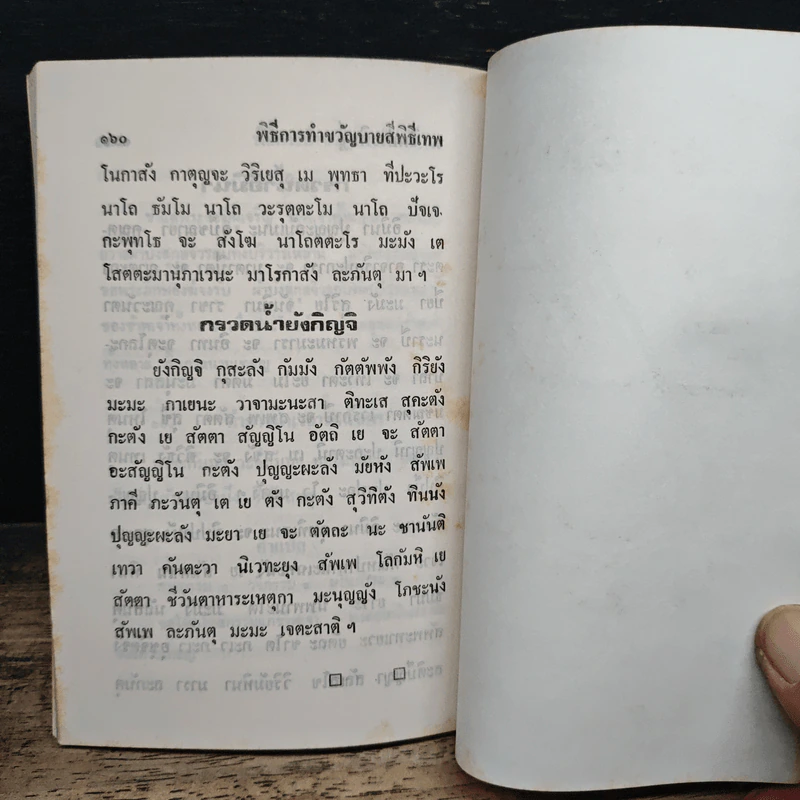 ๑๖๐ พิธีการทำขวัญบายสีพิธีเทพ
โนกาสัง กาตุญจะ วิริเยสุ เม พุทธา ทีปะวะโร
นาโถ ธัมโม นาโถ วะรุตตะโม นาโถ ปัจเจ-
กะพุทโธ จะ สังโฆ นาโถตตะโร มะมัง เต
โสตตะมานุภาเวนะ มาโรกาสัง ละภันตุ มา ฯ
กรวดน้ำยังกิญจิ
ยังกิญจิ กุสะลัง กัมมัง กัตตัพพัง กิริยัง
มะมะ กาเยนะ วาจามะนะสา ติทะเส สุคะตัง
กะตัง เย สัตตา สัญญิโน อัตถิ เย จะ สัตตา
อะสัญญิโน กะตัง ปุญญะผะลัง มัยหัง สัพเพ
ภาคี ภะวันตุ เต เย ตัง กะตัง สุวิทิตัง ทินนัง
ปุญญะผะลัง มะยา เย จะ ตัตละ นะ ชานันติ
เทวา คันตะวา นิเวทะยุง สัพเพ โลกัมหิ เย
สัตตา ชีวันตาหาระเหตุกา มะนุญญัง โภชะนัง
สัพเพ ละภันตุ มะมะ เจตะสาติ ฯ